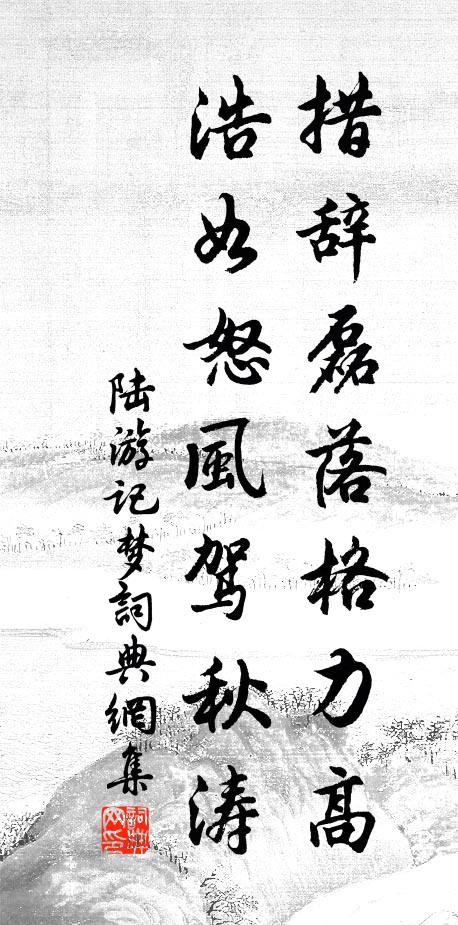 措辞磊落格力高
浩如怒風駕秋涛
陆游记梦詞典網集